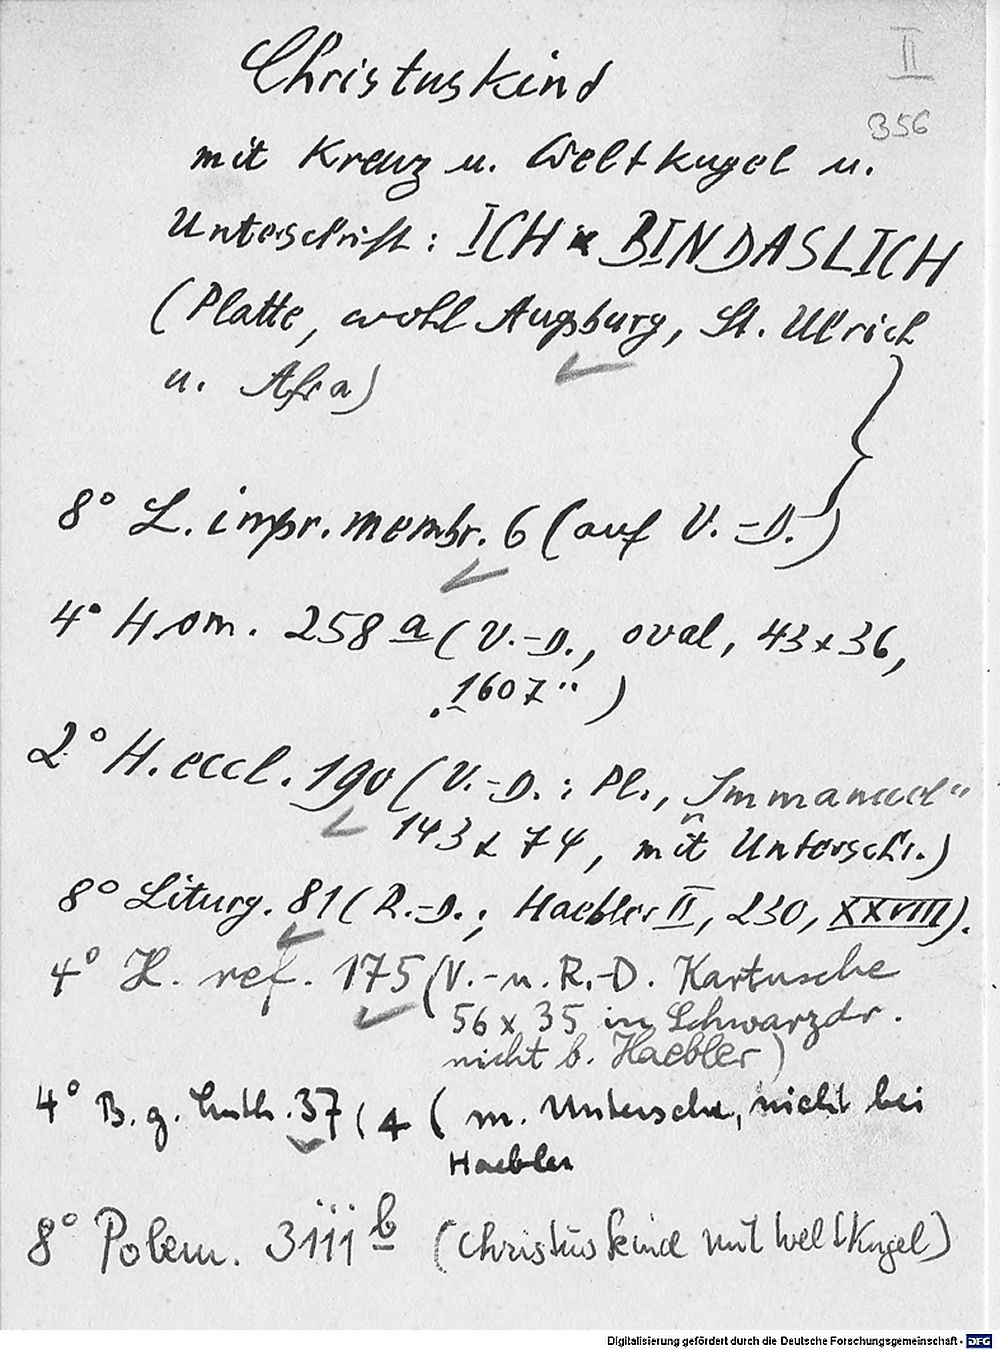 II
356
Christuskind
mit Kreuz u. Weltkugel u.
Unterschrift: ICH x BINDASLICH
(Platte, wohl Augsburg, St. Ulrich
u. Afra)
8° L. impr. membr. 6 (auf V.-D.)
4° Hom. 258 a (V.-D., oval, 43 x 36,
„1607“)
2° H. eccl. 190 (V.-D.: Pl., Immanuel“
143 x 74, mit Unterschr.)
8° Liturg. 81 (R.-D.; Haebler II, 230, XXVIII).
4° H. ref. 175 (V.- u. R.-D. Kartusche
56 x 35 in Schwarzdr.
nicht b. Haebler)
4° B. g. luth. 37 (4 ( m. Unterschr, nicht bei
Haebler
8° Polem. 3iii b (Christuskind mit Weltkugel)
Digitalisierung gefördert durch die Deutsche Forschungsgemeinschaft - DFG